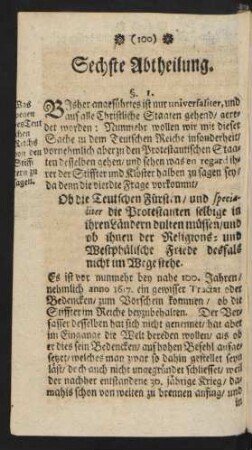 (100)
Sechste Abtheilung.
§. 1.
Was
wegen
des Teut
schen
Reichs
von den
Stiff-
tern zu
sagen.
Bisher angeführtes ist nur universaliter, und
auf alle Christliche Staaten gehend/ gere-
det worden: Nunmehr wollen wir mit dieser
Sache in dem Teutschen Reiche insonderheit/
vornehmlich aber zu den Protestantischen Staa-
ten desselben gehen/ und sehen was en regard ih-
rer der Stiffter und Klöster halben zu sagen sey/
da denn die vierdte Frage vorkommt/
Ob die Teutschen Fürsten/ und specia-
liter die Protestanten selbige in
ihren Ländern dulten müssen/ und
ob ihnen der Religions- und
Westphälische Friede desfals
nicht im Wege stehe.
Es ist vor nunmehr bey nahe 100. Jahren/
nehmlich anno 1617. ein gewisser Tractat oder
Bedencken/ zum Vorschein kommen/ ob die
Stiffter im Reiche beyzubehalten. Der Ver-
fasser desselben hat sich nicht genennet/ hat aber
im Eingange die Welt bereden wollen/ als ob
er dies sein Bedencken/ auf hohen Befehl aufge-
setzet/ welches man zwar so dahin gestellet seyn
läst/ doch auch nicht ungegründet schliesset/ weil
der nachher entstandene 30. jährige Krieg/ da-
mahls schon von weiten zu brennen anfing/ und